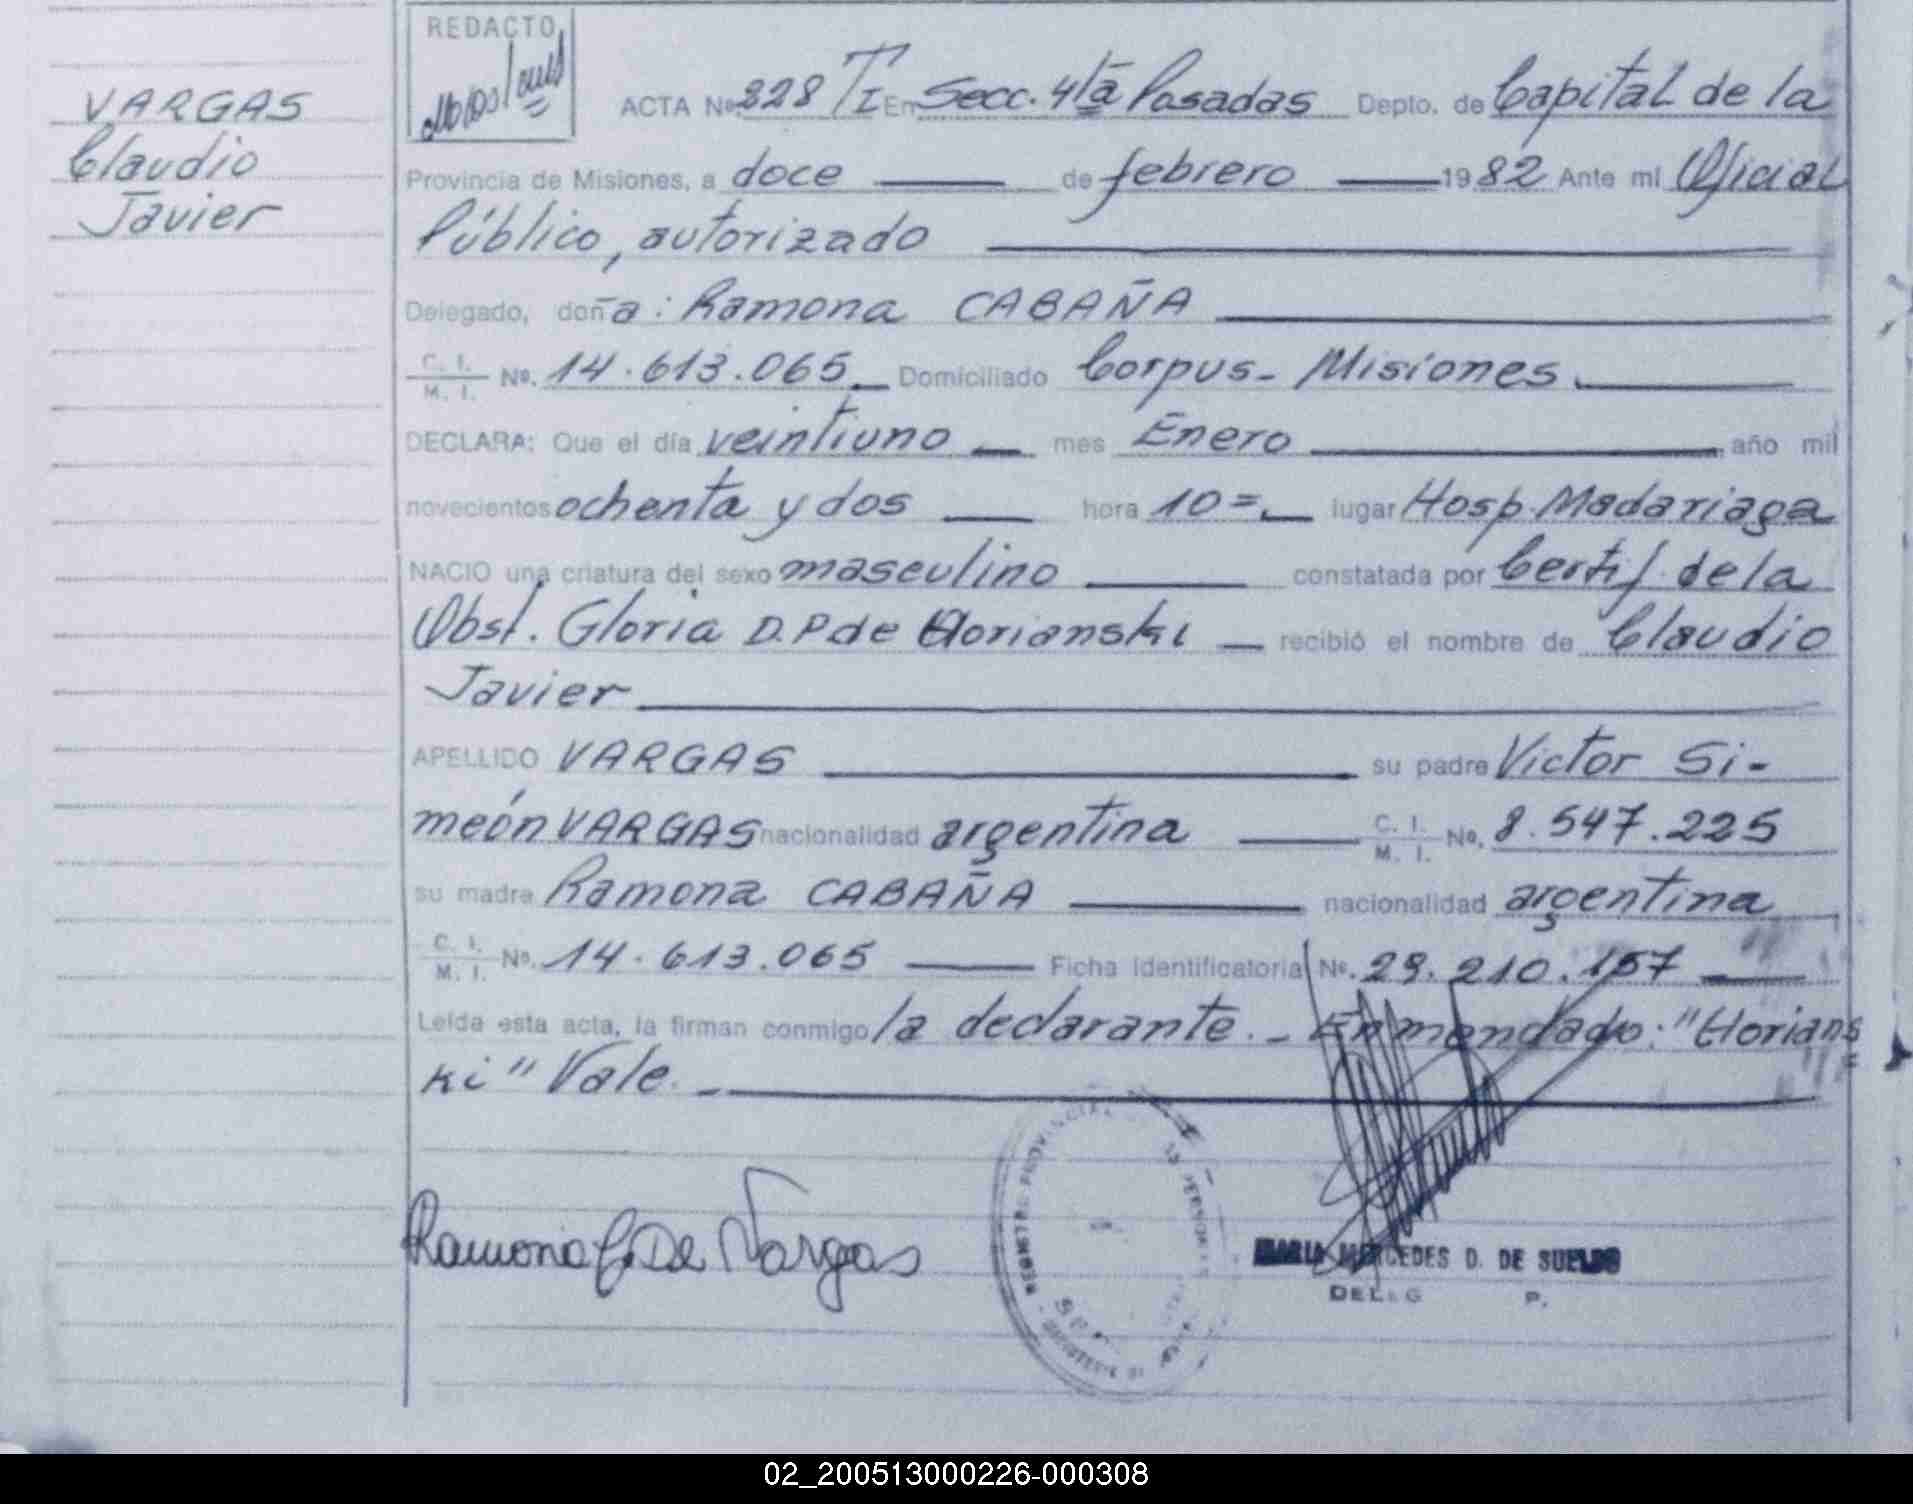 VARGAS
Claudio
Javier
REDACTO
ACTA Nº 328 T I En Secc. 4ta Posadas Depto. de Capital de la
Provincia de Misiones, a doce de febrero 1982 Ante mi Oficial
Público, autorizado
Delegado, doña: Ramona CABAÑA
C. I.
M. I. Nº. 14.613.065 Domiciliado Corpus - Misiones
DECLARA: Que el día veintiuno mes Enero año mil
novecientos ochenta y dos hora 10= lugar Hosp. Madariaga
NACIO una criatura del sexo masculino constatada por Certif. de la
Obst. Gloria D. P de Horianski recibió el nombre de Claudio
Javier
APELLIDO VARGAS su padre Victor Si-
meón VARGAS nacionalidad argentina C. I.
M. I. Nº. 8.547.225
su madre Ramona CABAÑA nacionalidad argentina
C. I.
M. I. Nº. 14.613.065 Ficha Identificatoria Nº. 29.210.157
Leída esta acta, la firman conmigo la declarante. - Enmendado: "Horians
ki" Vale. -
Ramona C. De Vargas
MARIA MERCEDES D. DE SUELDO
02_200513000226-000308